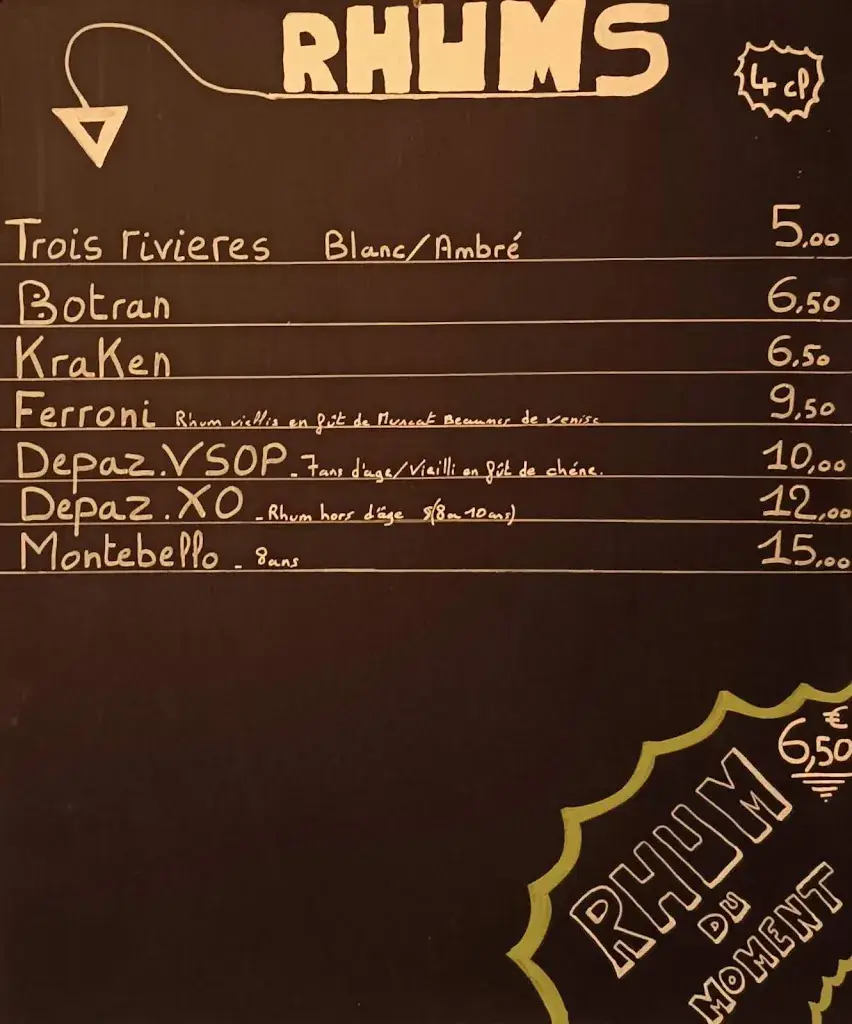 RHUMS
4 cl
Trois rivieres Blanc/Ambré 5,00
Botran 6,50
Kraken 6,50
Ferroni Rhum viellis en fût de Muscat Beaumes de venise 9,50
Depaz.VSOP - 7ans d'age/Vieilli en fût de chéne. 10,00
Depaz.XO - Rhum hors d'âge (8 a 10ans) 12,00
Montebello - 8ans 15,00
6,50 €
RHUM
DU
MOMENT